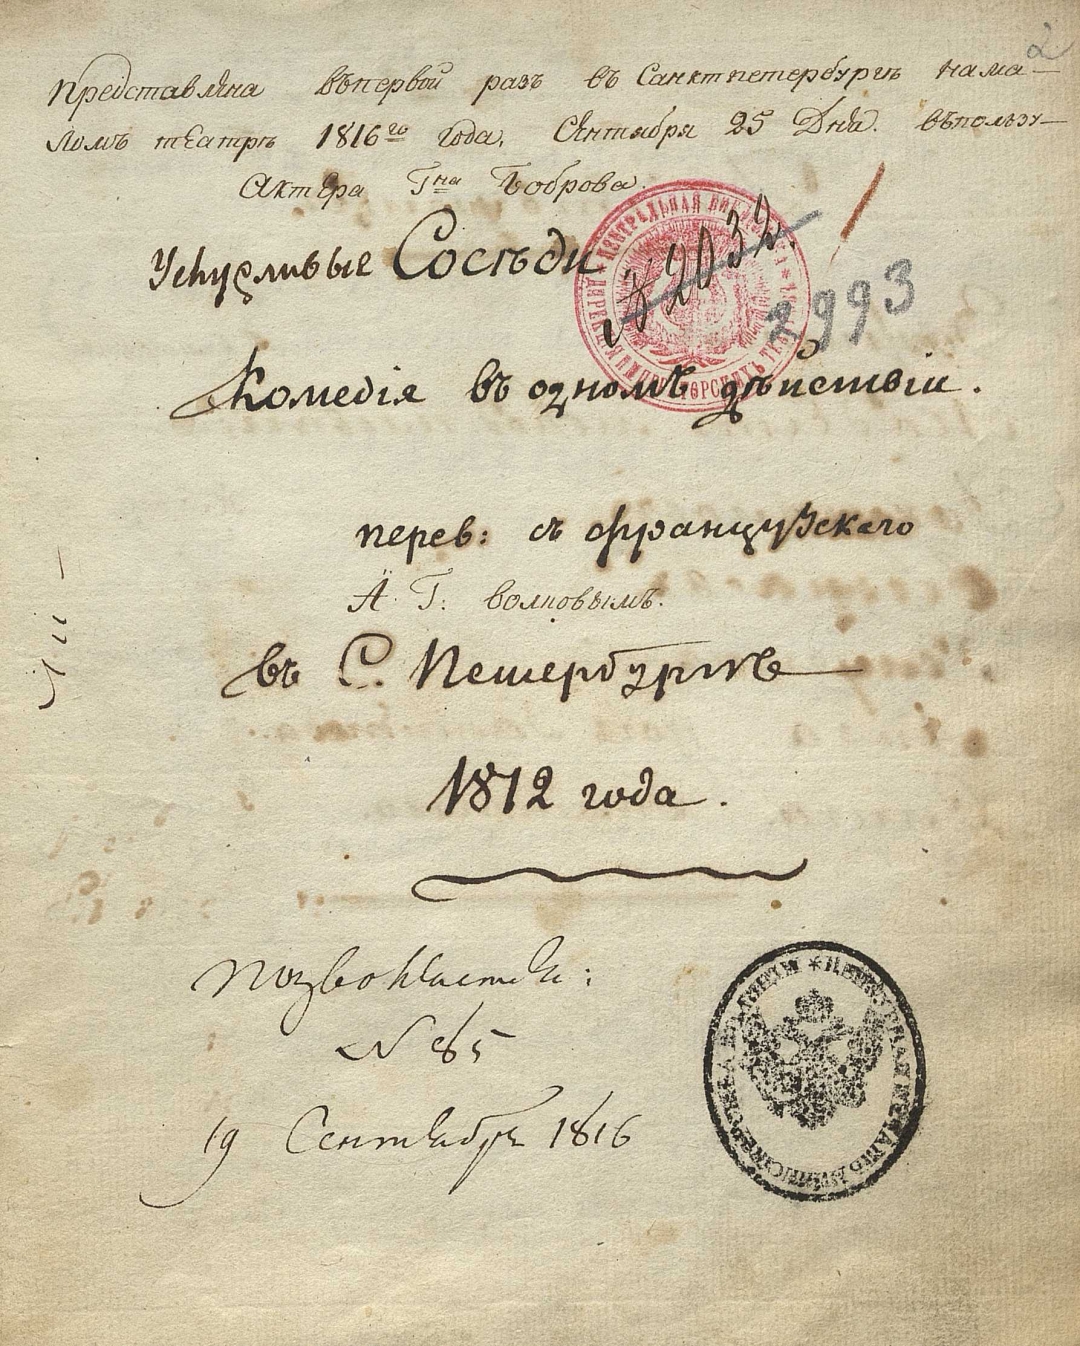 2
Представлена въпервой разъ въ Санктпетербургѣ нама-
ломъ театрѣ 1816го года, Сентября 25 Дня. въпользу-
Актера Гна Боброва.
Услужливые Сосѣди
№ 2032.
2993
Комедія въ одномъ дѣйствіи.
перев: съ французскаго
А. Г. Волковымъ.
въ С. Петербургѣ
1812 года.
Позволяется:
№ 85
19 Сентября 1816